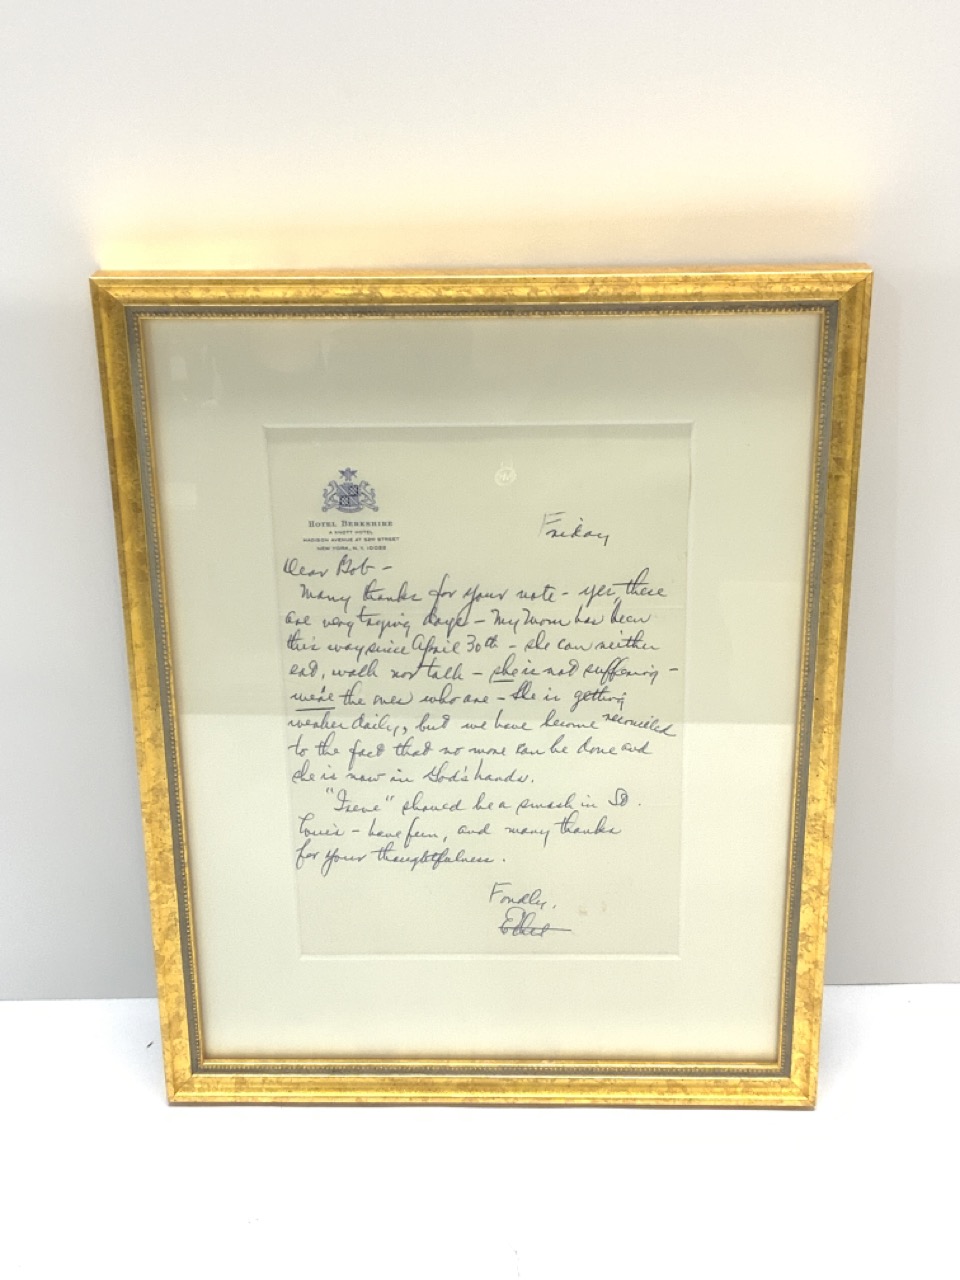 HOTEL BERKSHIRE
A KNOTT HOTEL
MADISON AVENUE AT 52ND STREET
NEW YORK, N. Y. 10022
Friday
Dear Bob -
Many thanks for your note - yes, these
are very trying days - My Mom has been
this way since April 30th - she can neither
eat, walk nor talk - she is not suffering -
we're the ones who are - She is getting
weaker daily, but we have become reconciled
to the fact that no more can be done and
she is now in God's hands.
"Irene" should be a smash in St.
Louis - have fun, and many thanks
for your thoughtfulness.
Fondly,
Ethel